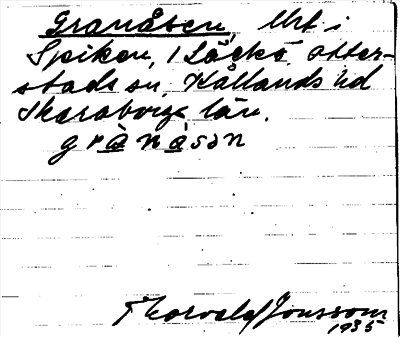 Granåsen, Urt i
Spiken, 1 Läckö, Otter-
stads sn, Kållands hd
Skaraborgs län.
grànàsən
Thorvald Jonsson
1935